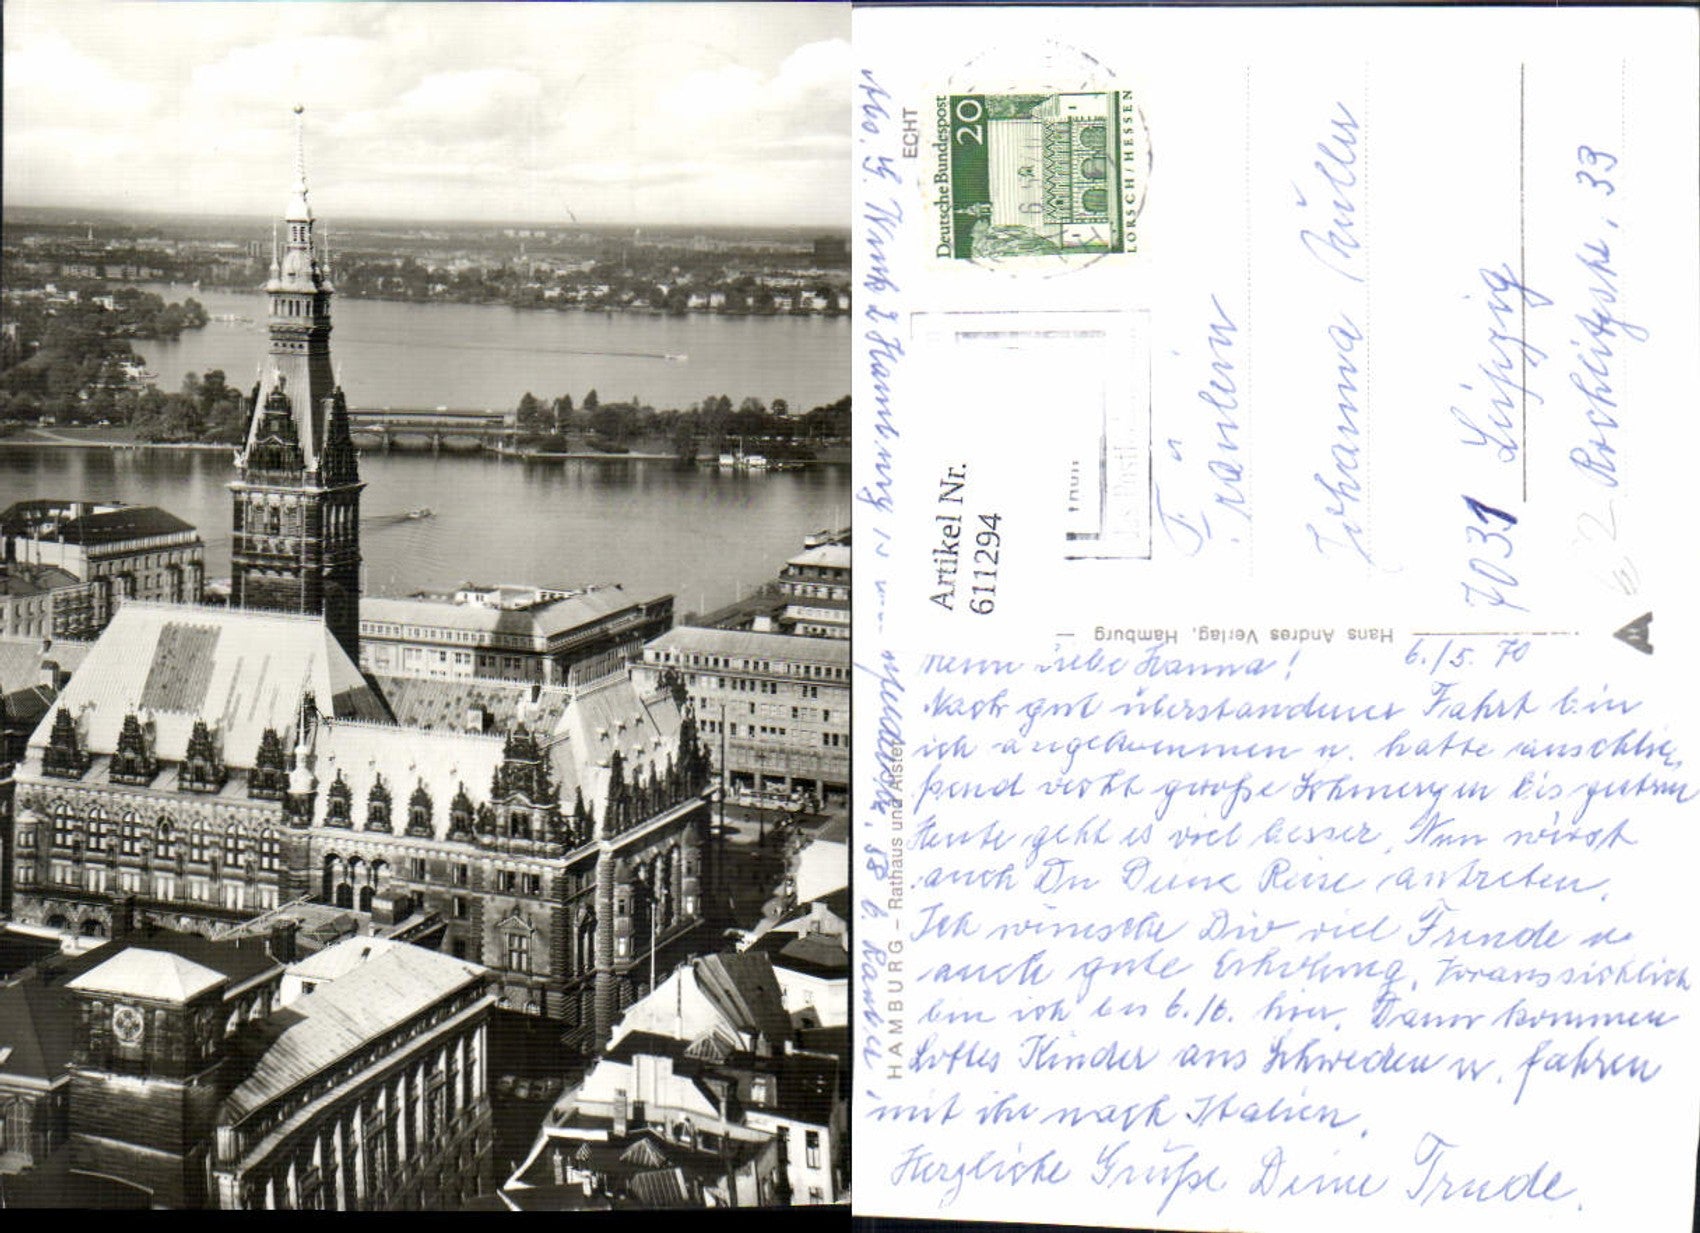 Meine liebe Hanna! 6./5. 70
Nach gut überstandener Fahrt bin
ich angekommen u. hatte anschlie-
ßend recht große Schmerzen bis gestern
Heute geht es viel besser. Nun wirst
auch Du Deine Reise antreten.
Ich wünsche Dir viel Freude u.
auch gute Erholung. Voraussichtlich
bin ich bis 6./6. hier. Dann kommen
Lottes Kinder aus Schweden u. fahren
mit ihr nach Italien.
Herzliche Grüße Deine Trude.
Abs. 2 Hamburg b.
HAMBURG – Rathaus und Alster
ECHT
Hans Andres Verlag, Hamburg
Deutsche Bundespost
20
LORSCH/HESSEN
Artikel Nr.
611294
Fräulein
Johanna Müller
7031 Leipzig
33